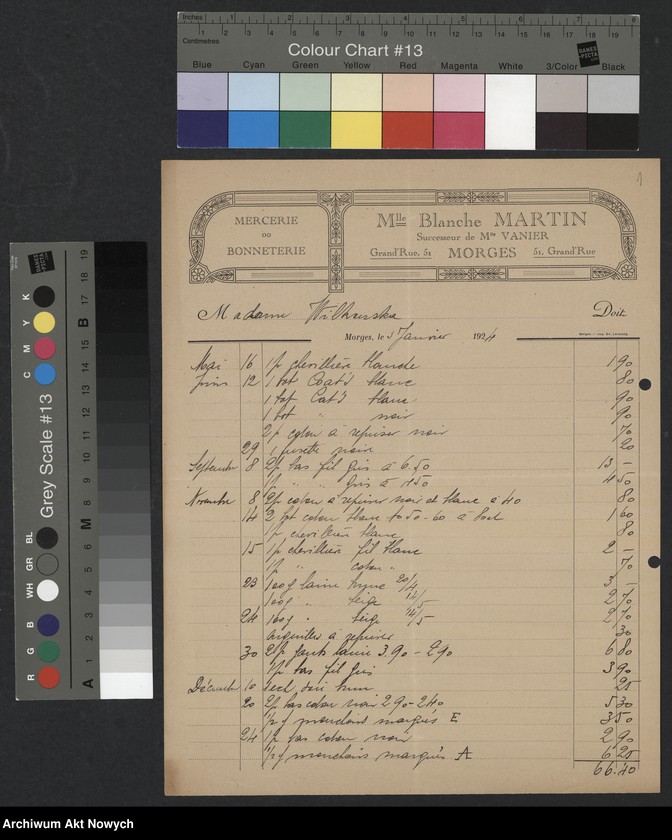 Inches 1 2 3 4 5 6 7 8
Centimetres 1 2 3 4 5 6 7 8 9 10 11 12 13 14 15 16 17 18 19
Colour Chart #13
DANES
PICTA
.COM
Blue Cyan Green Yellow Red Magenta White 3/Color Black
Grey Scale #13
C M Y K
R G B WH GR BL
A 1 2 3 4 5 6 M 8 9 10 11 12 13 14 15 B 17 18 19
1
MERCERIE
DO
BONNETERIE
Mlle Blanche MARTIN
Successeur de Mme VANIER
Grand'Rue, 51 MORGES 51, Grand'Rue
Madame Wilkonska Doit
Morges, le 5 Janvier 1924
Mai 16 1 p chevillière blanche 1 90
Juin 12 1 tot Coat's blanc 80
1 tot Cat's blanc 90
1 tot " noir 90
2 p coton à repriser noir 70
29 1 fusette noire 20
Septembre 8 2 p bas fil gris à 6.50 13 –
1 p " " gris à 4.50 4 50
Novembre 8 2 p coton à repriser noir et blanc à 40 80
14 2 coton blanc 50-60 à 1 60
1 p chevillière blanc 80
15 1 p chevillière fil blanc 2 –
1 p " coton " 70
23 100 g laine 3 –
100 g " beige 14/5 2 70
24 100 g " beige 14/5 2 70
aiguilles à repriser 30
30 2 p gants laine 3.90 - 2.90 6 80
1 p bas fil gris 3 90
Décembre 10 25
20 2 p bas coton noir 2 90 - 2 40 5 30
1/2 mouchoirs marqués E 3 50
24 1 p bas coton noir 2 90
1/2 mouchoirs marqués A 6 25
66.40
Archiwum Akt Nowych